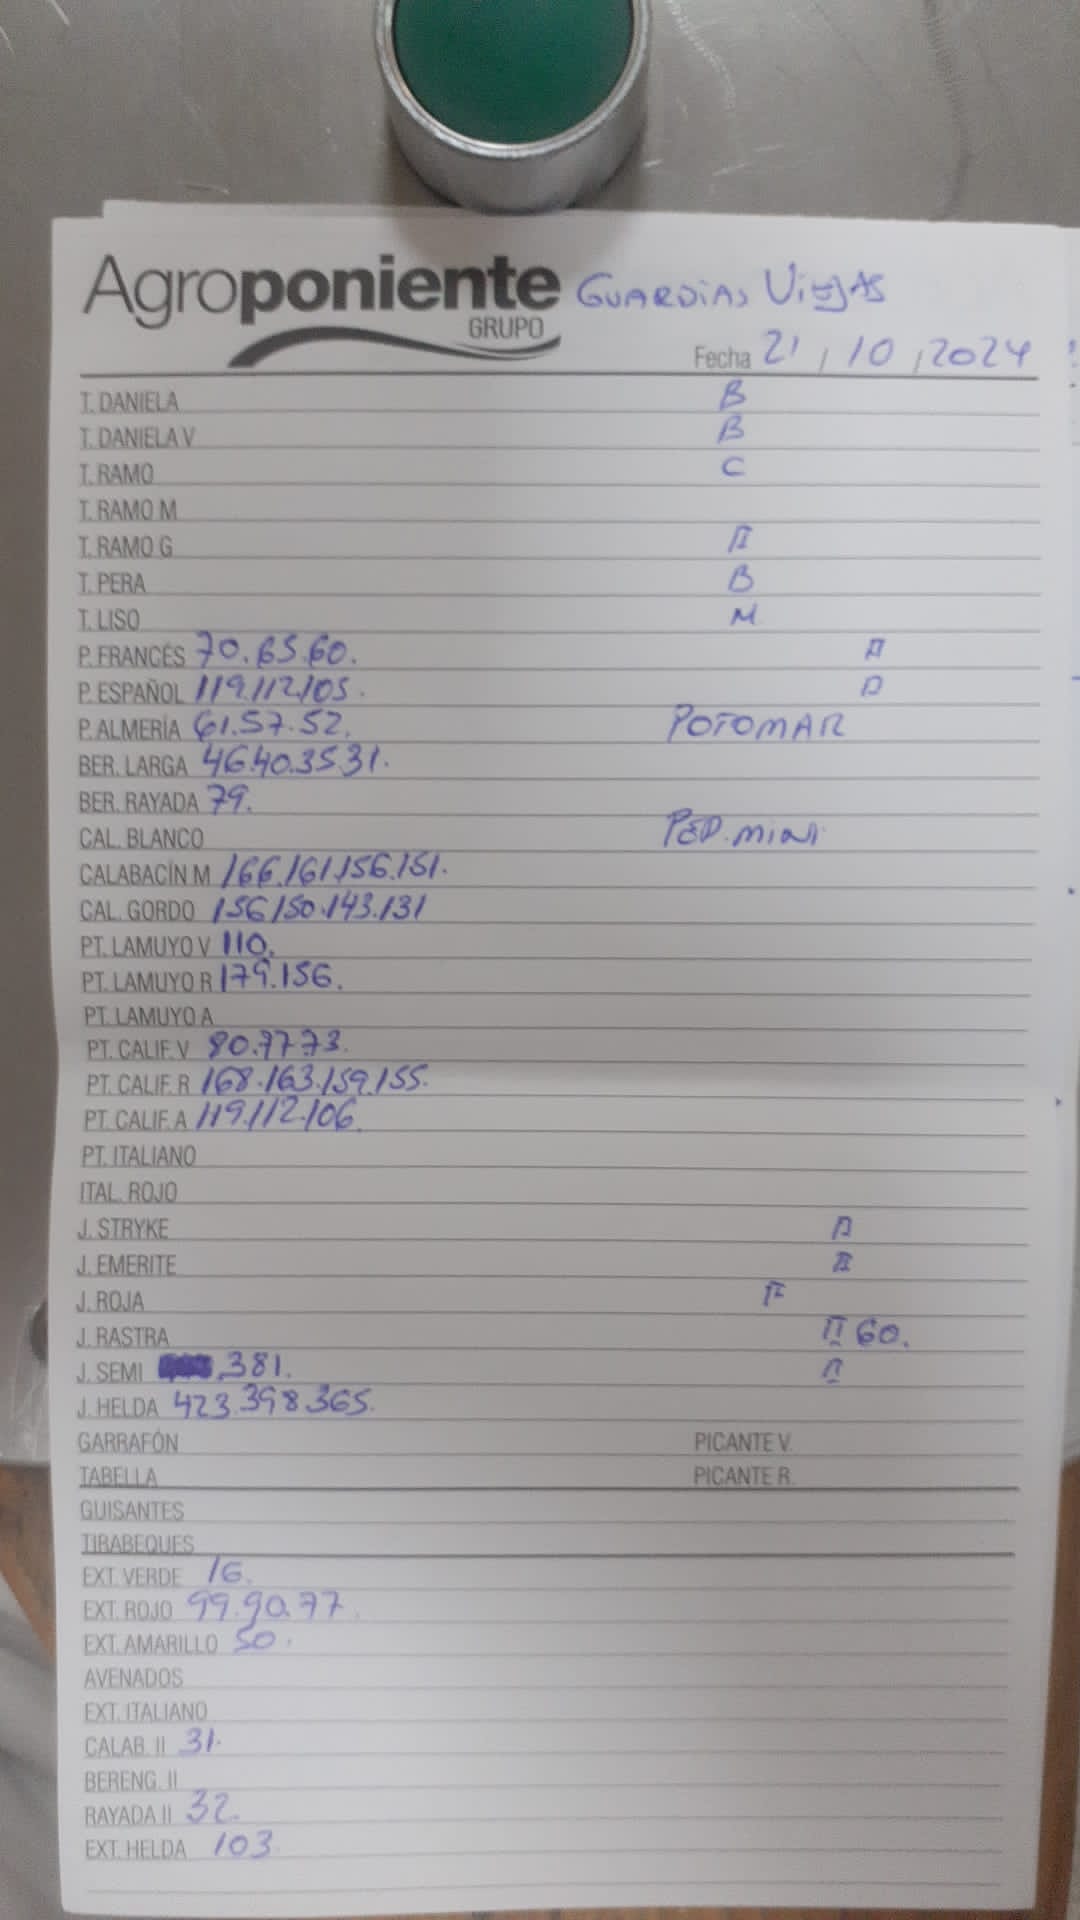 Agroponiente GUARDIAS VIEJAS
GRUPO
Fecha 21 / 10 / 2024
T. DANELA B
T. DANIELA V B
T. RAMO C
T. RAMO M
T. RAMO G
T. PERA B
T. LISO M
P. FRANCÉS 70.65.60.
P. ESPAÑOL 119.112.105.
P. ALMERÍA 61.57.52. POTOMAR
BER. LARGA 46.40.35.31.
BER. RAYADA 79.
CAL. BLANCO PEP.MINI
CALABACÍN M 166.161.156.151.
CAL. GORDO 156.150.143.131
PT. LAMUYO V 110.
PT. LAMUYO R 179.156.
PT. LAMUYO A
PT. CALIF. V 80.77.73.
PT. CALIF. R 168.163.159.155.
PT. CALIF. A 119.112.106.
PT. ITALIANO
ITAL. ROJO
J. STRYKE
J. EMERITE
J. ROJA F
J. RASTRA 60.
J. SEMI .381.
J. HELDA 423.398.365.
GARRAFÓN PICANTE V.
TABELLA PICANTE R.
GUISANTES
TIRABEQUES
EXT. VERDE 16.
EXT. ROJO 99.90.77.
EXT. AMARILLO 50.
AVENADOS
EXT. ITALIANO
CALAB. II 31.
BERENG. II
RAYADA II 32.
EXT. HELDA 103